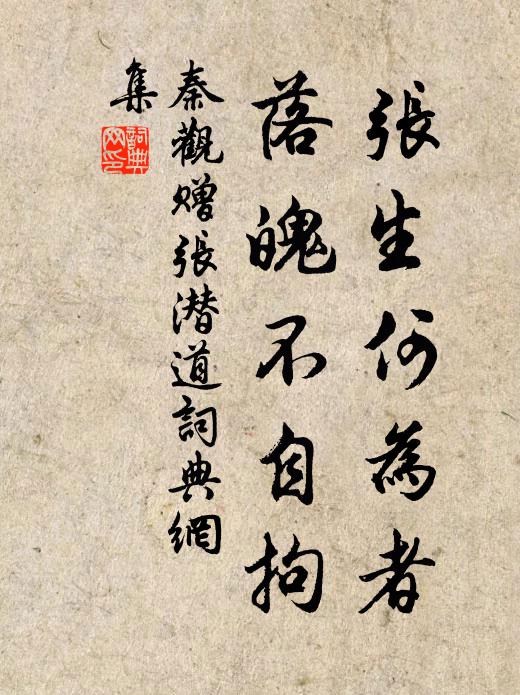 張生何為者
落魄不自拘
秦觀贈張潜道詞典網
集
詞典
网印